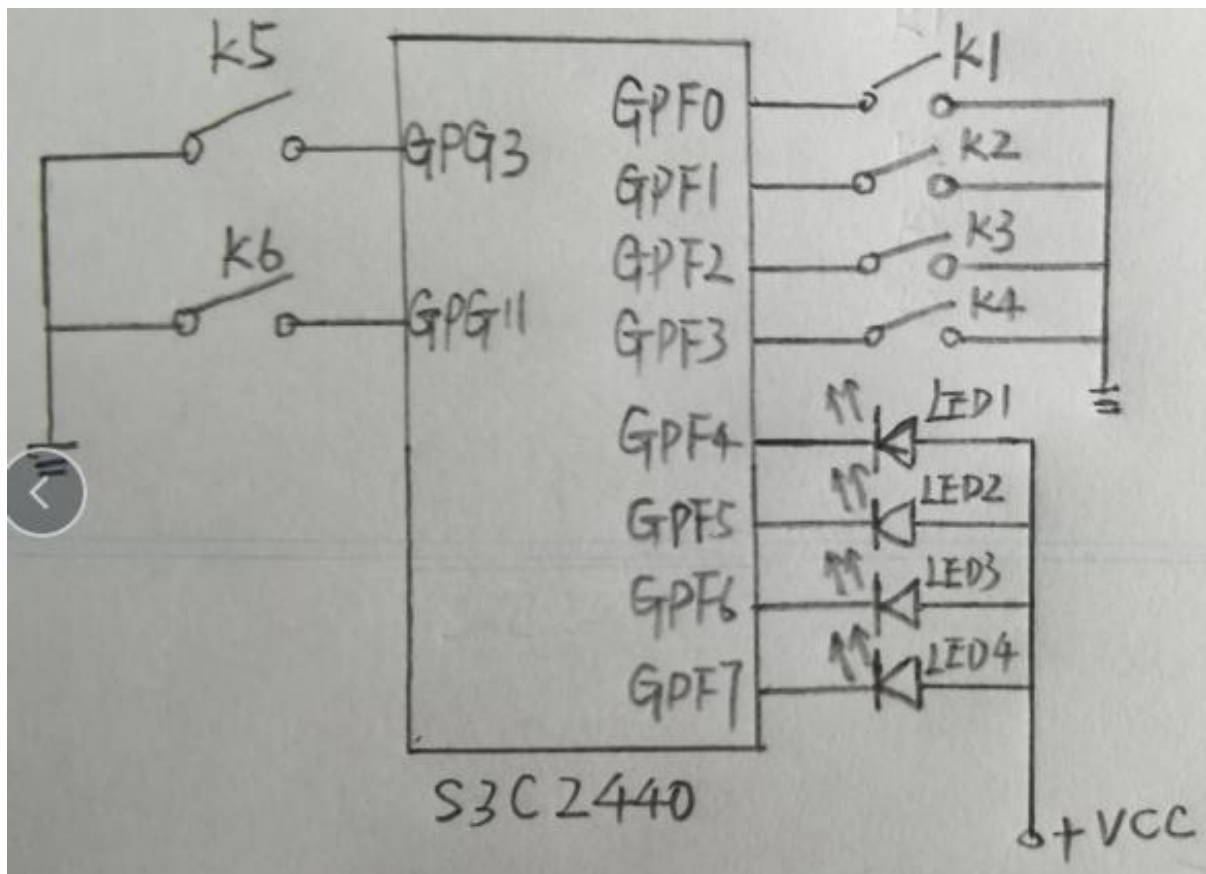 K5
K6
GPG3
GPG11
GPF0
GPF1
GPF2
GPF3
GPF4
GPF5
GPF6
GPF7
K1
K2
K3
K4
LED1
LED2
LED3
LED4
S3C2440
+VCC